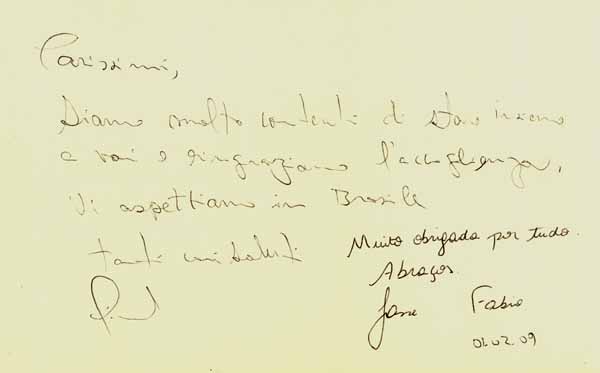 Carissimi,
Siamo molto contenti di stare insieme
a voi e ringraziamo l'accoglienza,
Vi aspettiamo in Brasile
tanti
Muito obrigada por tudo.
Abraços
Fabio
01.02.09